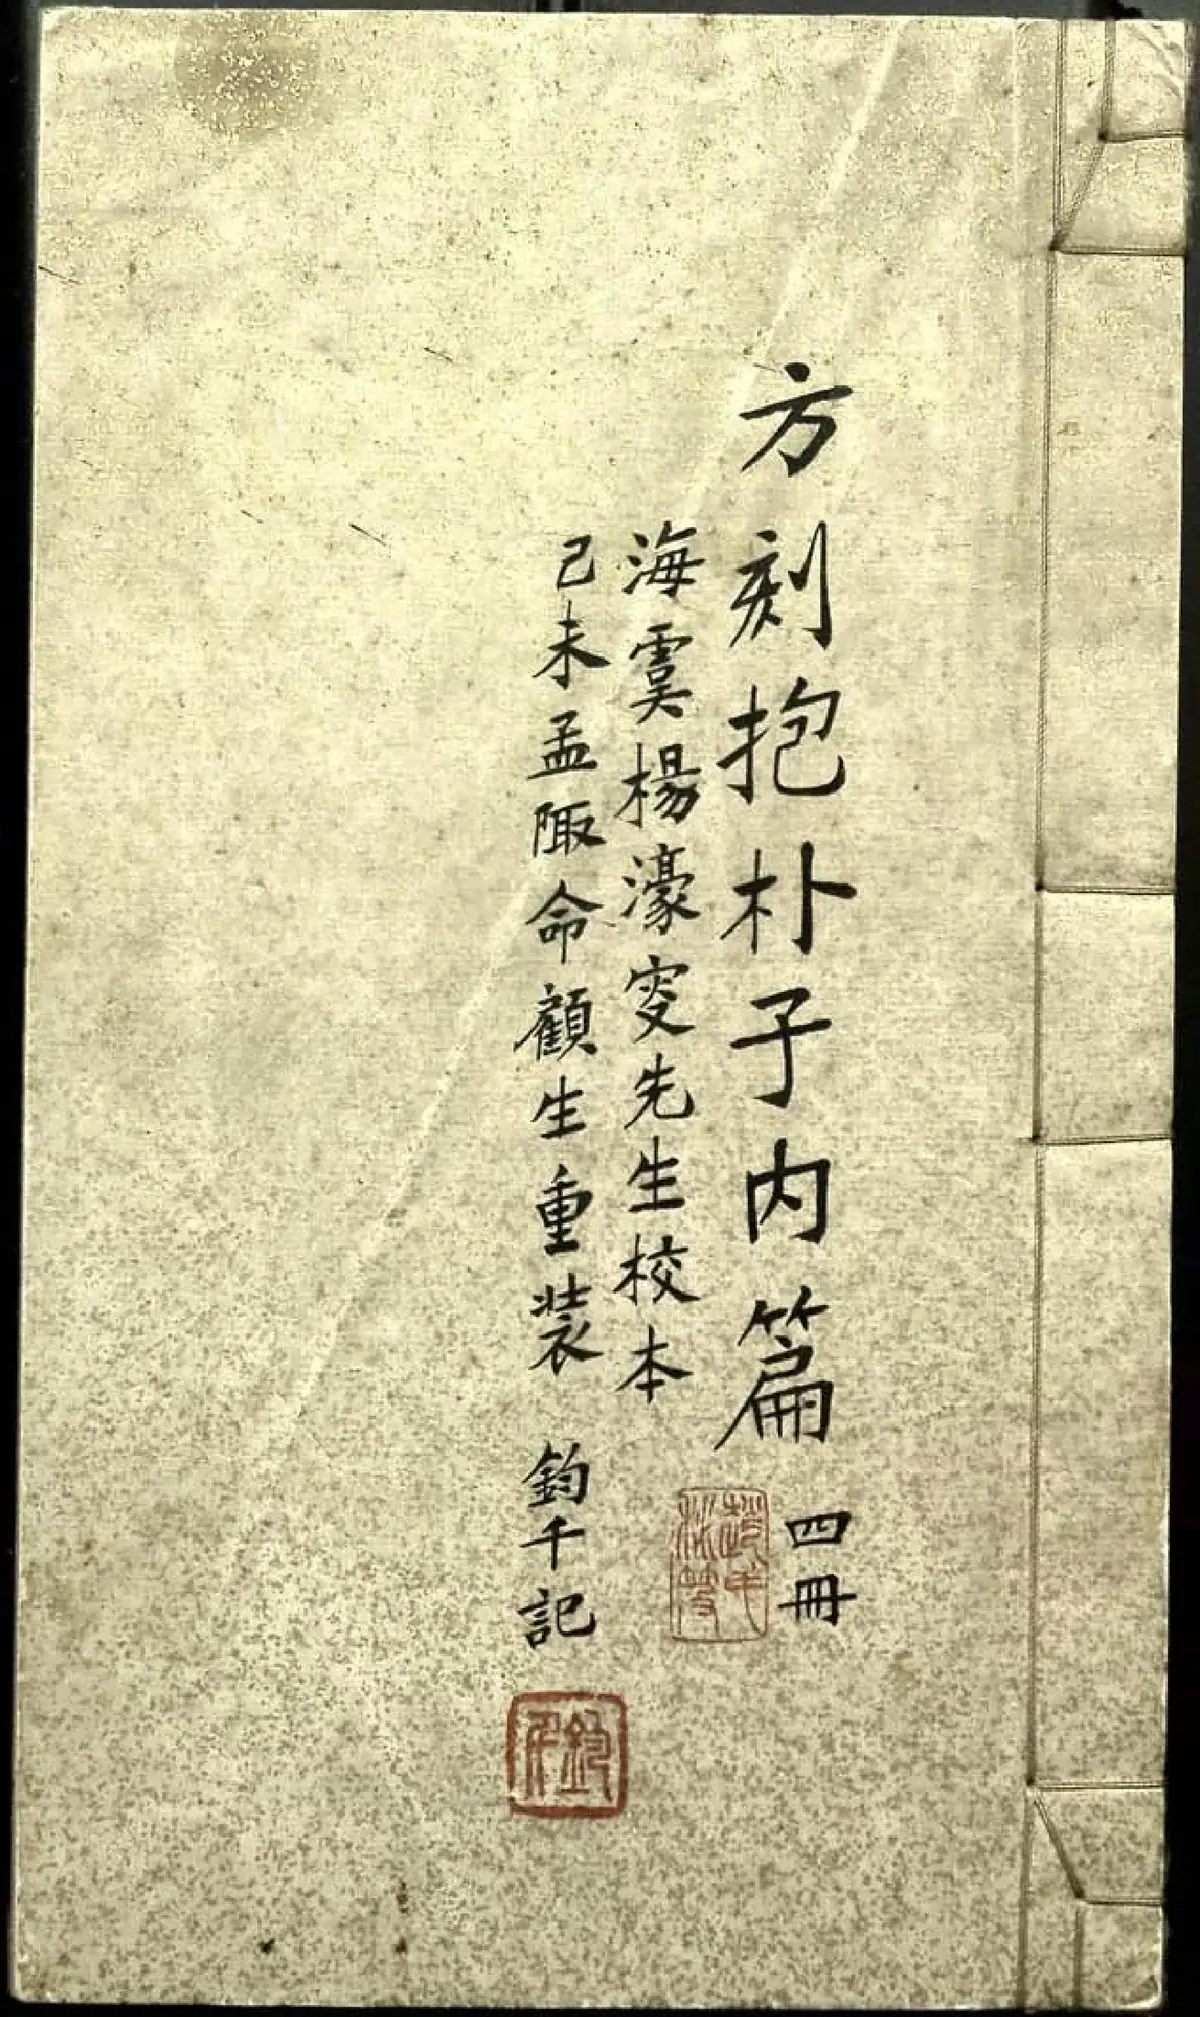 方刻抱朴子内篇 四冊
海虞楊濠叟先生校本
己未孟陬命顧生重裝 鈞千記